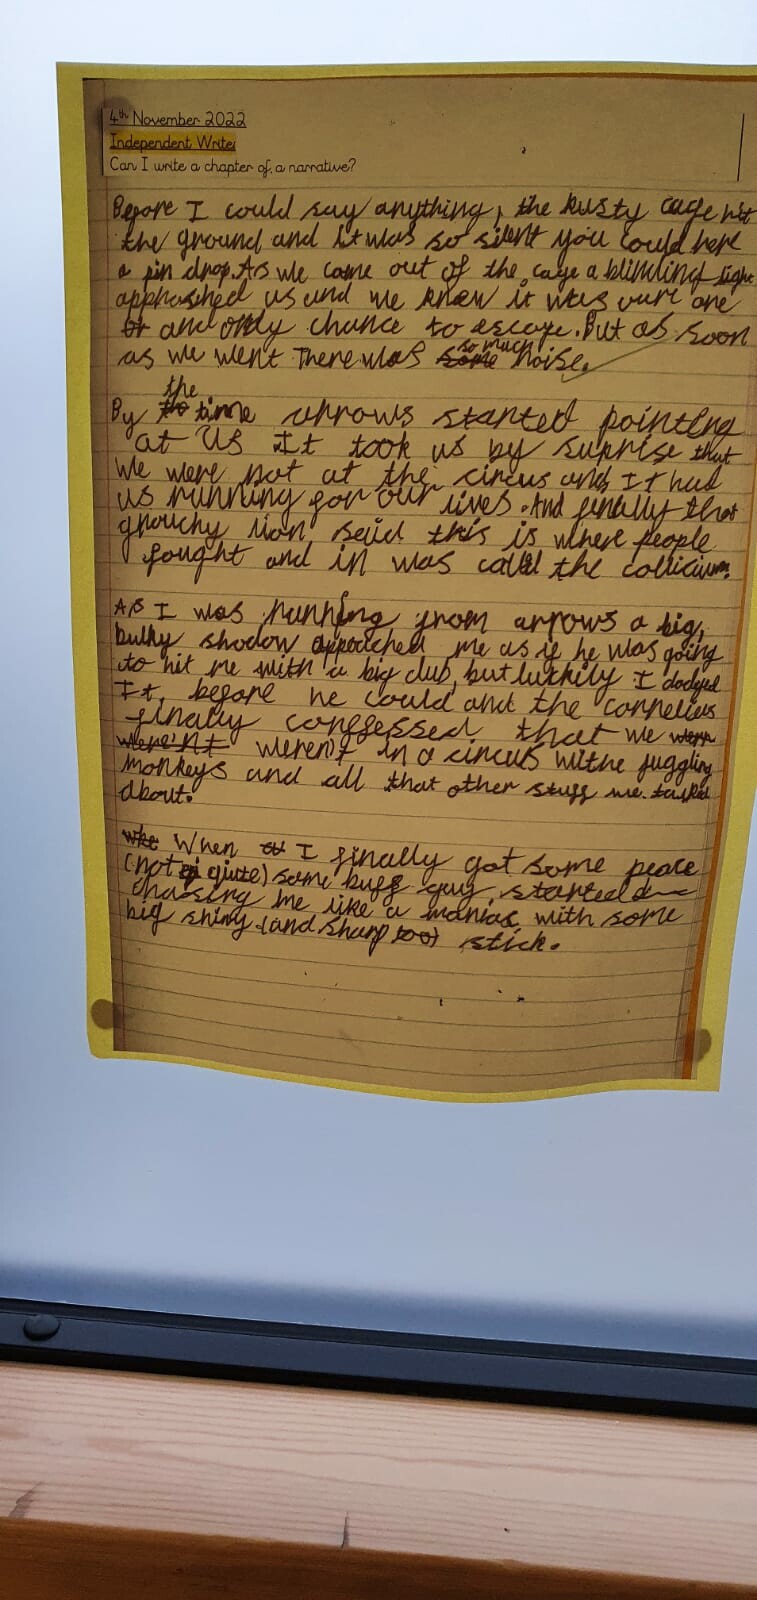 4th November 2022
Independent Write
Can I write a chapter of a narrative?
Before I could say anything, the Rusty cage hit
the ground and it was so silent you could here
a pin drop. As we came out of the cage a blinding light
approached us and we knew it was our one
and only chance to escape. But as soon
as we went There was some so much noise.
By the the time arrows started pointing
at us It took us by suprise that
we were not at the circus and It had
us running for our lives. And finally that
grouchy lion said this is where people
fought and in was called the
As I was running from arrows a big,
bulky shadow me as if he was going
to hit me with a big club, but luckily I dodged
It, before he could and the cornelius
finally conffessed that we wern
were'nt weren't in a circus withe juggling
monkeys and all that other stuff we talked
about.
whe When I finally got some peace
(not quite) some buff guy started
chasing me like a maniac with some
big shiny (and sharp too) stick.